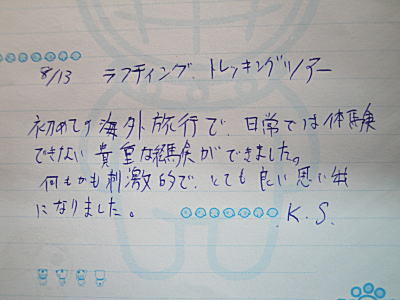 8/13 ラフティング、トレッキングツアー
初めての海外旅行で、日常では体験
できない貴重な経験ができました。
何もかも刺激的で、とても良い思い出
になりました。
K.S.